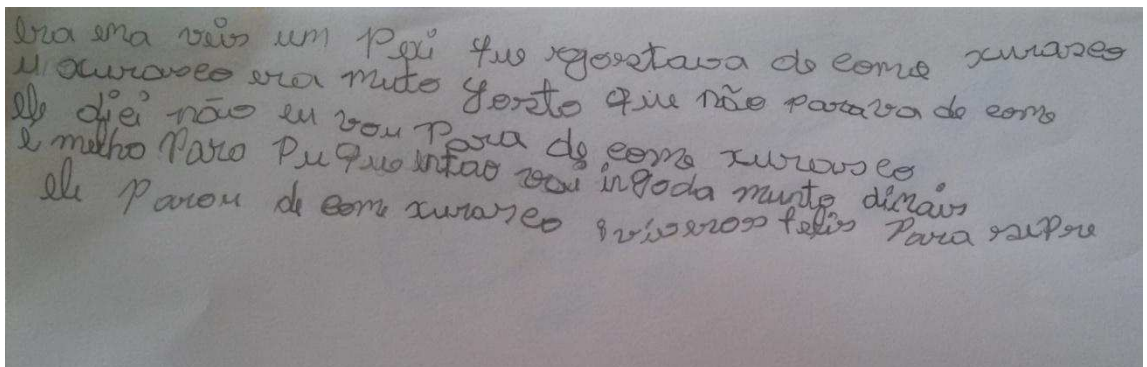 Era uma veis um Pexi que gostava de come xurasco
u xurasco era muto gosto que não parava de come
ele diei não eu vou Para de come xurasco
e melho Paro Puque intao vou ingoda munto dimais
ele Parou de come xurasco e viveros felis Para sepre